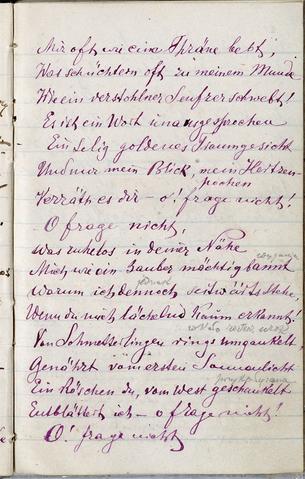 Mir oft wie eine Thräne bebt,
Was schüchtern oft zu meinem Munde
Wie ein verstohlner Seufzer schwebt!
Es ist ein Wort unausgesprochen
Ein selig goldenes Traumgesicht
Und nur mein Blick, mein Hertzen
pochen
Verräth es dir – o! frage nicht!
O frage nicht,
was ruhelos in deiner Nähe
Mich wie ein Zauber mächtig bannt
Warum ich dennoch seitwärts stehe
Wenn du mich lächelnd kaum erkannt!
Von Schmetterlingen rings umgaukelt,
Genährt vom ersten Sonnenlicht
Ein Röschen du, vom West geschaukelt
Entblättert ich – o frage nicht!
O! frage nicht